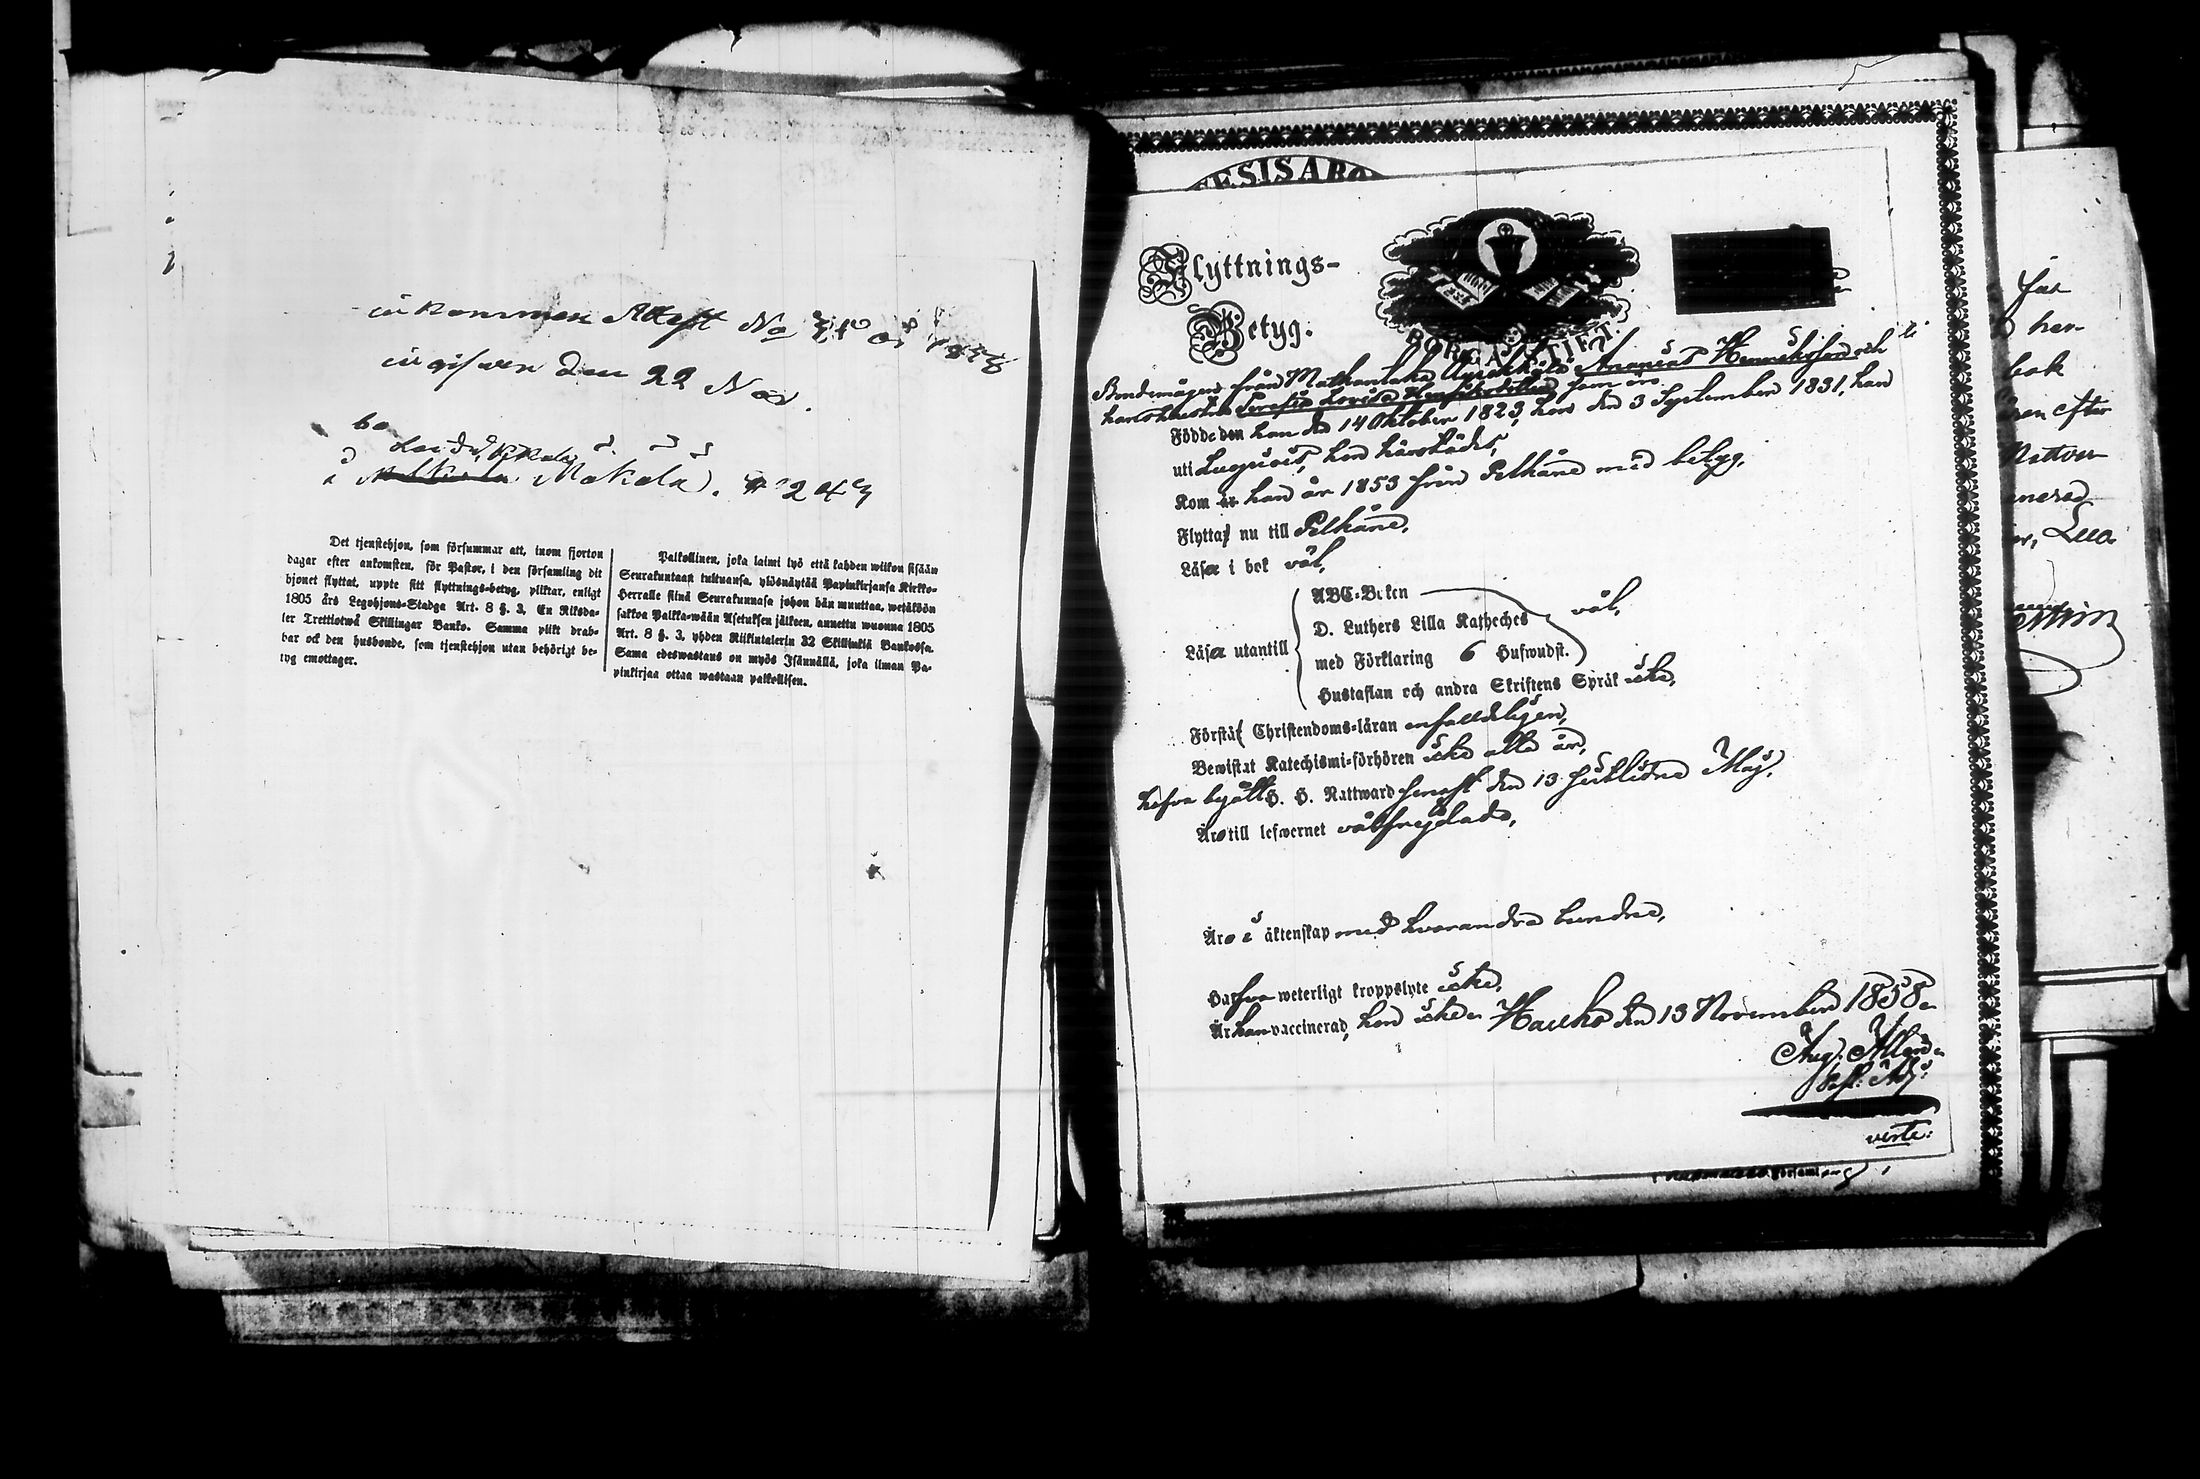 inkommen Attest No 31 år 1858
ingifven den 22 Nov.
bo
i Mokala. # 243
Det tjenstehjon, som försummar att, inom fjorton
dagar efter ankomsten, för Pastor, i den församling dit
hjonet flyttat, uppte sitt flyttnings-betyg, pliktar, enligt
1805 års Legohjons-Stadga Art. 8 §. 3, En Riksda-
ler Trettiotwå Skillingar Banko. Samma plikt drab-
bar ock den husbonde, som tjenstehjon utan behörigt be-
tyg emottager.
Palkollinen, joka laimi lyö että kahden wiikon sisään
Seurakuntaan tultuansa, ylösnäytää Papinkirjansa Kirkko-
Herralle siinä Seurakunnasa johon hän muuttaa, wetäköön
sakkoa Palkka-wään Asetuksen jälkeen, annettu wuonna 1805
Art. 8 §. 3, yhden Riikintalerin 32 Skillinkiä Bankossa.
Sama edeswastaus on myös Isännällä, joka ilman Pa-
pinkirjaa ottaa wastaan palkollisen.
ESISARO
Flyttnings-
Betyg.
BORGÅ STIFT.
Bondemågen från Mathanlaks Ananias Henriksson och
hans hustru Serafia Lovisa Henriksdotter som äro
Födde den han den 14 Oktober 1823, hon den 3 September 1831, han
uti Luopiois, hon härstädes,
Kom år han år 1853 från Pelkäne med betyg,
Flytta nu till Pelkäne,
Läsa i bok väl,
ABC-Boken
D. Luthers Lilla Katheches väl,
Läsa utantill
med Förklaring 6 Hufwudst.
Hustaflan och andra Skriftens Språk icke,
Förstå Christendoms-läran enfaldeligen,
Bewistat Katechismi-förhören icke alla år,
hafva begått H. H. Nattward senast den 13 sistlidne Maj,
Äro till lefwernet välfrejdade,
Äro i äktenskap med hvarandra bundne,
Hafva weterligt kroppslyte icke,
Är han vaccinerad, hon icke. Hauho den 13 November 1858.
Aug.
Adj:
verte:
för
her-
bok
efter
Nattvar